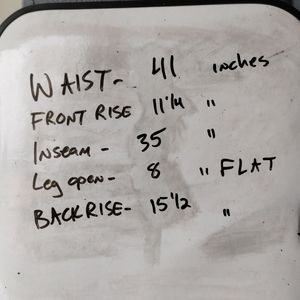 WAIST- 41 inches
FRONT RISE 11 1/4 "
Inseam - 35 "
Leg open- 8 " FLAT
BACK RISE- 15 1/2 "